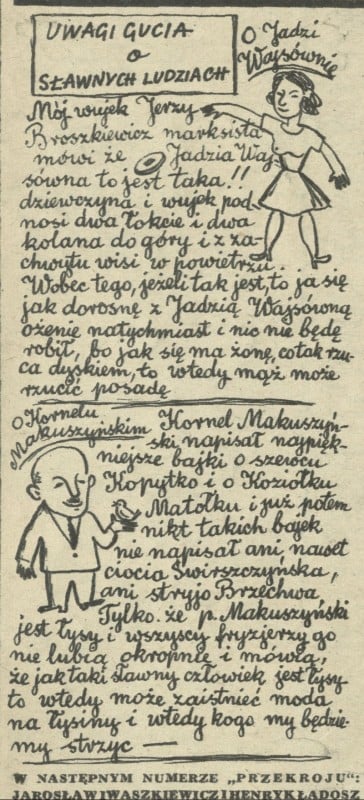 UWAGI GUCIA
o
SŁAWNYCH LUDZIACH
O Jadzi
Wajsównie
Mój wujek Jerzy
Broszkiewicz marksista
mówi że Jadzia Waj-
sówna to jest taka!!
dziewczyna i wujek pod-
nosi dwa łokcie i dwa
kolana do góry i z za-
chwytu wisi w powietrzu.
Wobec tego, jeżeli tak jest, to ja się
jak dorosnę z Jadzią Wajsówną
ożenię natychmiast i nic nie będę
robił, bo jak się ma żonę, co tak rzu-
ca dyskiem, to wtedy mąż może
rzucić posadę
O Kornelu
Makuszyńskim
Kornel Makuszyń-
ski napisał najpięk-
niejsze bajki o szewcu
Kopytko i o Koziołku
Matołku i już potem
nikt takich bajek
nie napisał ani nawet
ciocia Świrszczyńska,
ani stryjo Brzechwa
Tylko że p. Makuszyński
jest łysy i wszyscy fryzjerzy go
nie lubią okropnie i mówią,
że jak taki sławny człowiek jest łysy
to wtedy może zaistnieć moda
na łysiny i wtedy kogo my będzie-
my strzyc —
W NASTĘPNYM NUMERZE „PRZEKROJU":
JAROSŁAW IWASZKIEWICZ I HENRYK ŁADOSZ